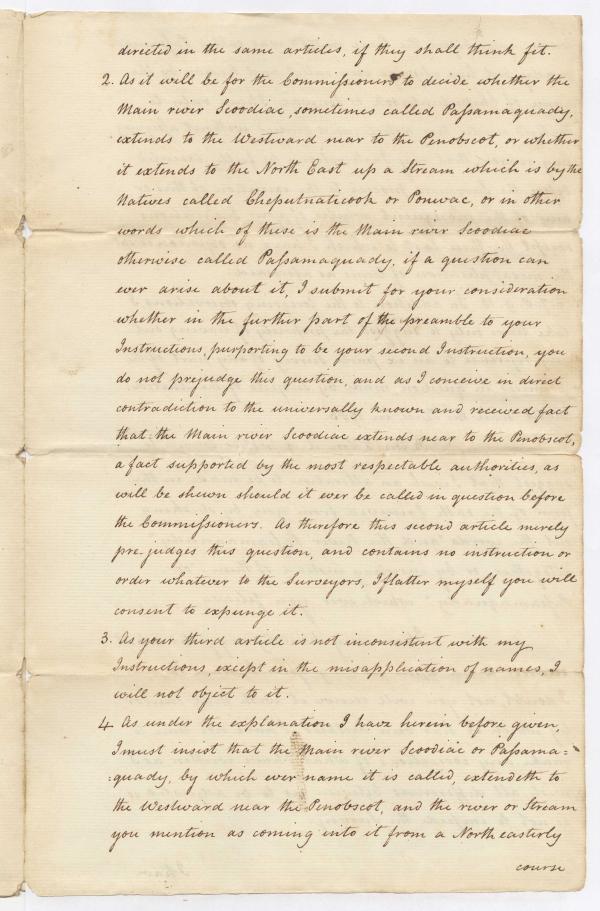 directed in the same articles, if they shall think fit.
2. As it will be for the Commissioners to decide whether the
Main river Scoodiac, sometimes called Passamaquady,
extends to the Westward near to the Penobscot, or whether
it extends to the North East up a Stream which is by the
Natives called Cheputnaticook or Ponwac, or in other
words which of these is the Main river Scoodiac
otherwise called Passamaquady, if a question can
ever arise about it, I submit for your consideration
whether in the further part of the preamble to your
Instructions, purporting to be your second Instruction, you
do not prejudge this question, and as I conceive in direct
contradiction to the universally known and received fact
that the Main river Scoodiac extends near to the Penobscot,
a fact supported by the most respectable authorities, as
will be shewn should it ever be called in question before
the Commissioners. As therefore this second article merely
pre-judges this question, and contains no instruction or
order whatever to the Surveyors, I flatter myself you will
consent to expunge it.
3. As your third article is not inconsistent with my
Instructions, except in the misapplication of names, I
will not object to it.
4 As under the explanation I have herein before given,
I must insist that the Main river Scoodiac or Passama=
=quady, by which ever name it is called, extendeth to
the Westward near the Penobscot, and the river or Stream
you mention as coming into it from a North easterly
course